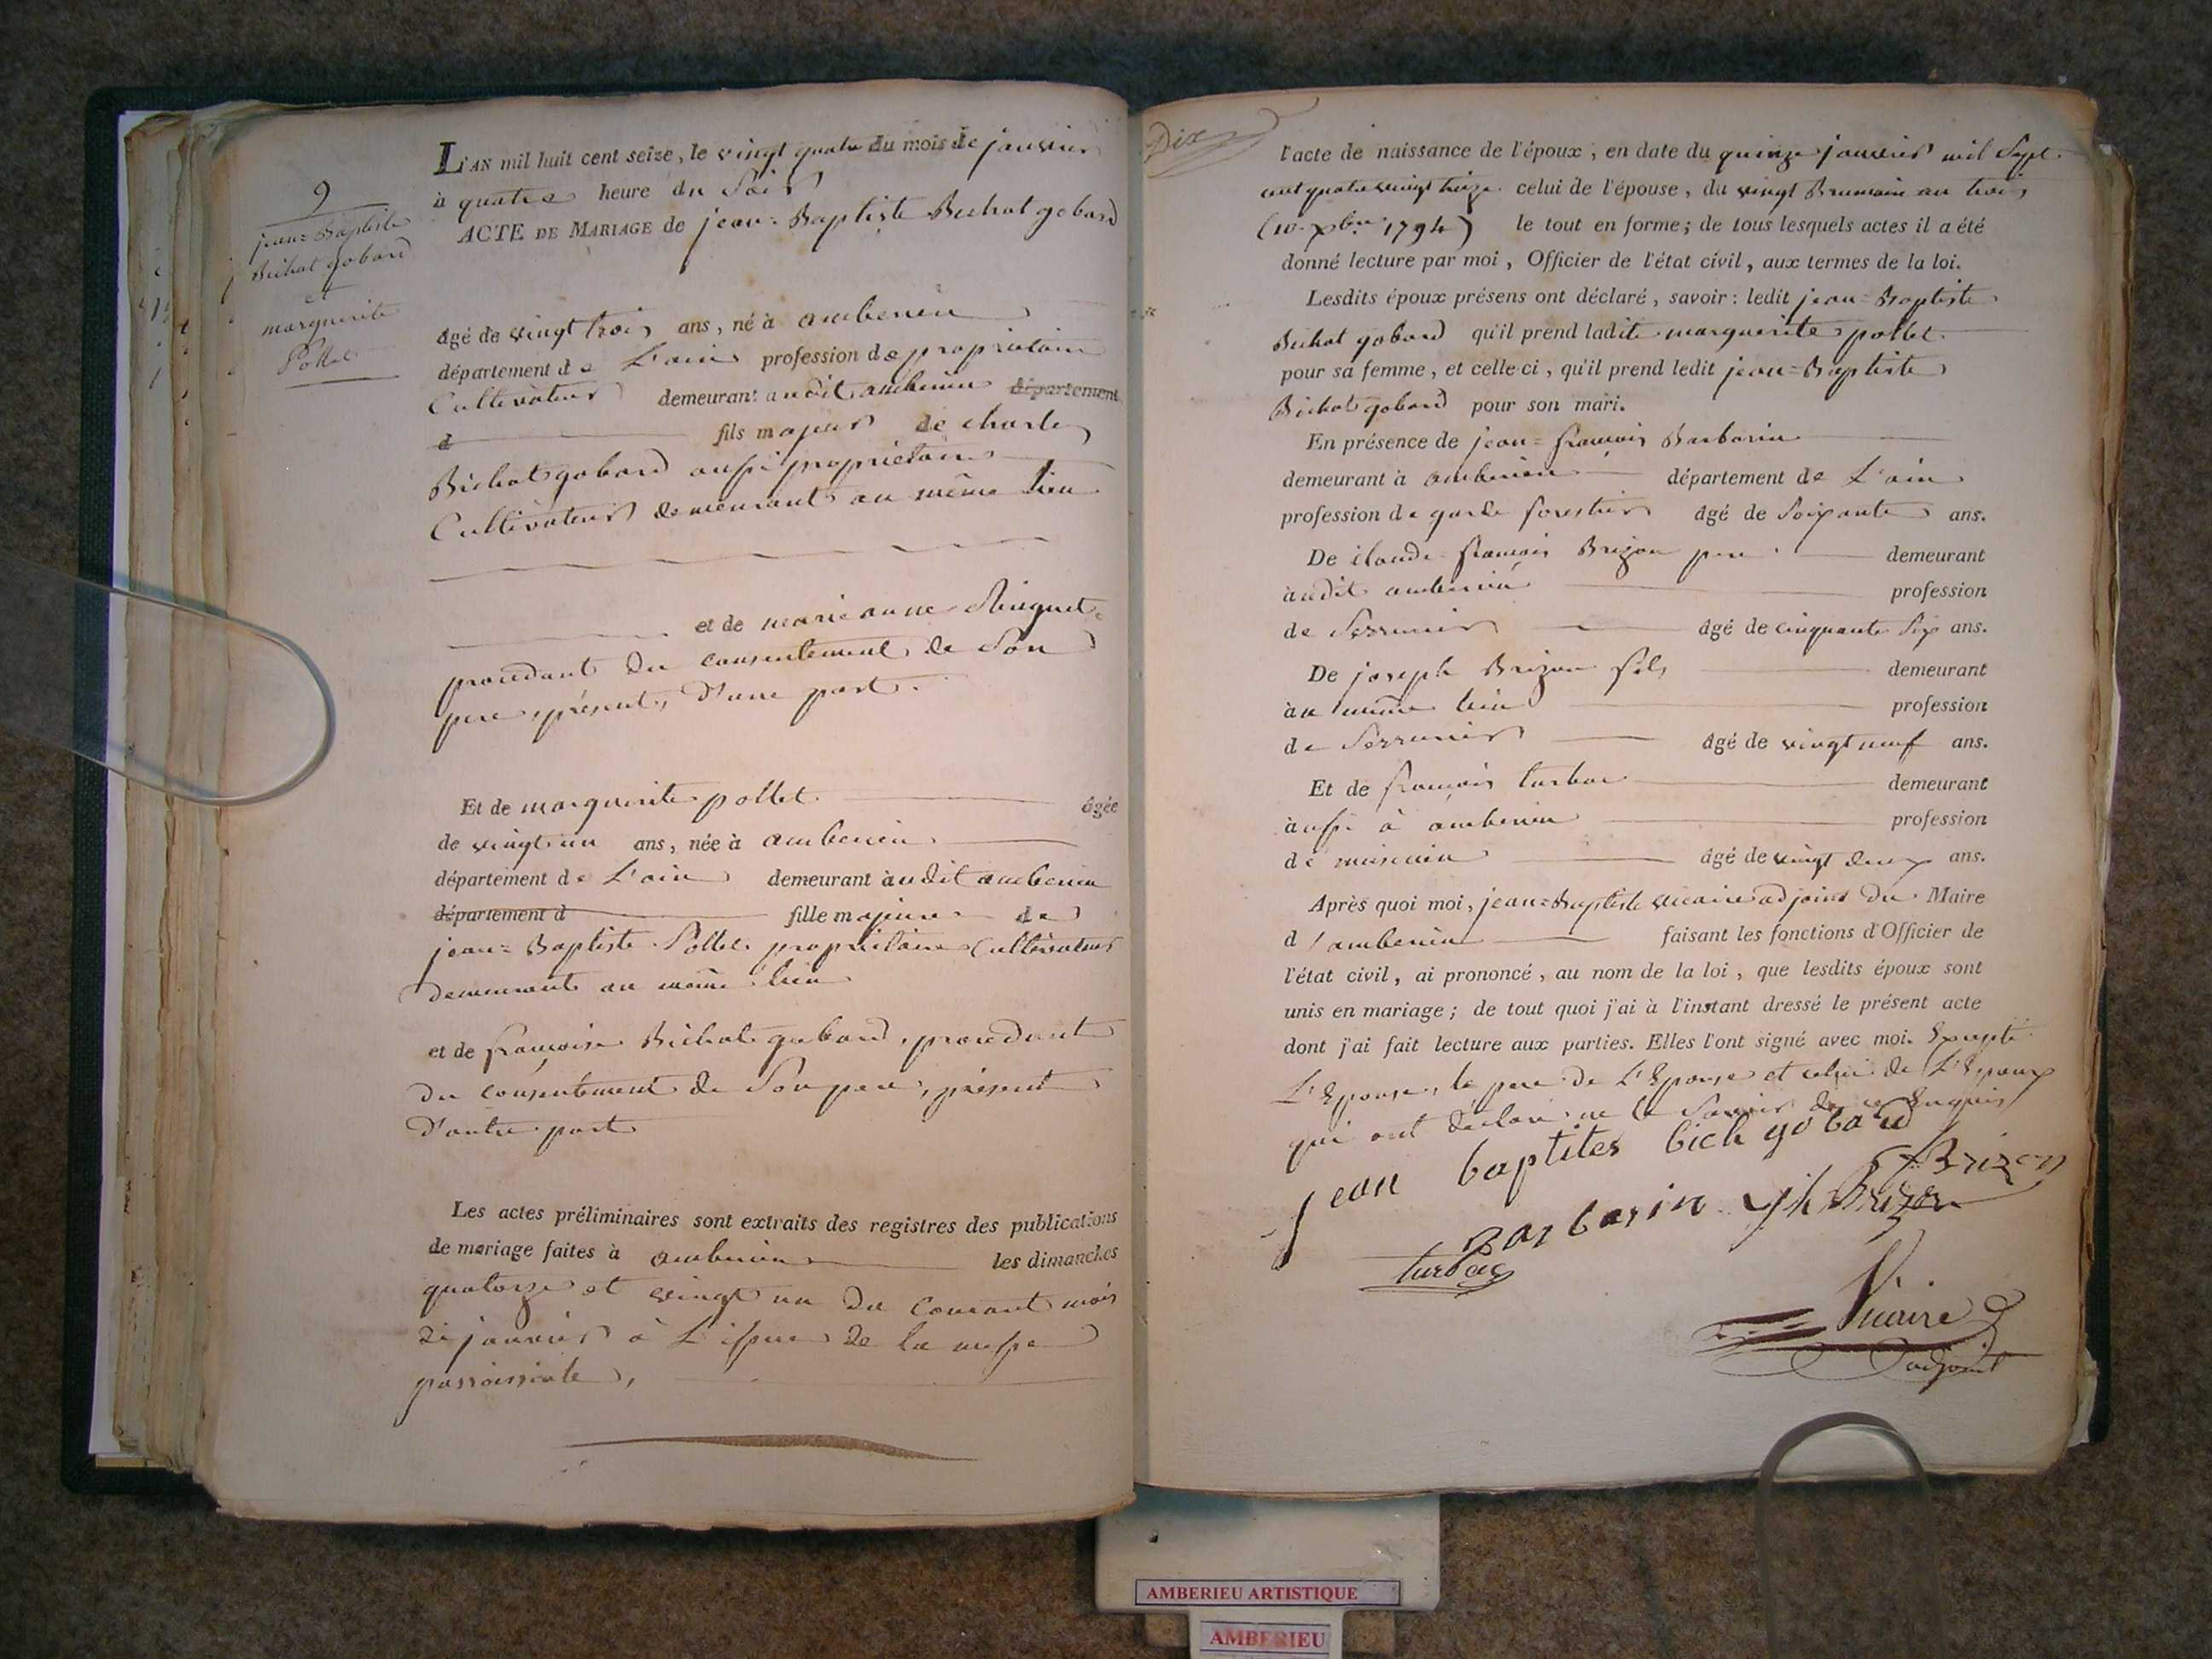 9
jean=Baptiste
Bichat gobard
et
marguerite
Pollet
L'AN mil huit cent seize, le vingt quatre du mois de janvier
à quatre heure du Soir
ACTE DE MARIAGE de jean=Baptiste Bichat gobard
âgé de vingt trois ans, né à amberieu
département de L'ain profession de propriétaire
Cultivateur demeurant audit amberieu département
d fils majeur de charles
Bichat gobard aussi propriétaire
Cultivateur demeurant au même lieu
et de marie anne
procédant du consentement de Son
pere, présent, d'une part.
Et de marguerite pollet âgée
de vingt un ans, née à amberieu
département de L'ain demeurant audit amberieu
département d fille majeure de
jean=Baptiste Pollet propriétaire Cultivateur
demeurant au même lieu
et de françoise Bichat gobard, procédant
du consentement de Son pere, présent
d'autre part
Les actes préliminaires sont extraits des registres des publications
de mariage faites à amberieu les dimanches
quatorze et vingt un du Courant mois
de janvier à L'issue de la messe
parroissiale,
Dix
l'acte de naissance de l'époux, en date du quinze janvier mil Sept
cent quatre vingt treize celui de l'épouse, du vingt Brumaire an trois
(10 xbre 1794) le tout en forme; de tous lesquels actes il a été
donné lecture par moi, Officier de l'état civil, aux termes de la loi.
Lesdits époux présens ont déclaré, savoir: ledit jean=Baptiste
Bichat gobard qu'il prend ladite marguerite pollet
pour sa femme, et celle-ci, qu'il prend ledit jean=Baptiste
Bichat gobard pour son mari.
En présence de jean=françois Barbarin
demeurant à amberieu département de L'ain
profession de garde forestier âgé de Soixante ans.
De claude françois Brizon pere demeurant
audit amberieu profession
de Serrurier âgé de cinquante Six ans.
De joseph Brizon fils demeurant
au même lieu profession
de Serrurier âgé de vingt neuf ans.
Et de françois turbac demeurant
aussi à amberieu profession
de âgé de vingt deux ans.
Après quoi moi, jean=Baptiste vicaire adjoint du Maire
d'amberieu faisant les fonctions d'Officier de
l'état civil, ai prononcé, au nom de la loi, que lesdits époux sont
unis en mariage; de tout quoi j'ai à l'instant dressé le présent acte
dont j'ai fait lecture aux parties. Elles l'ont signé avec moi. Excepté
L'Epouse, le pere de L'Epouse et celui de L'Epoux
qui ont déclaré ne le Savoir de ce Enquis
jean baptites bich gobard
Brizon
Barbarin jh Brizon
turbac
Vicaire
adjoint
AMBERIEU ARTISTIQUE
AMBERIEU